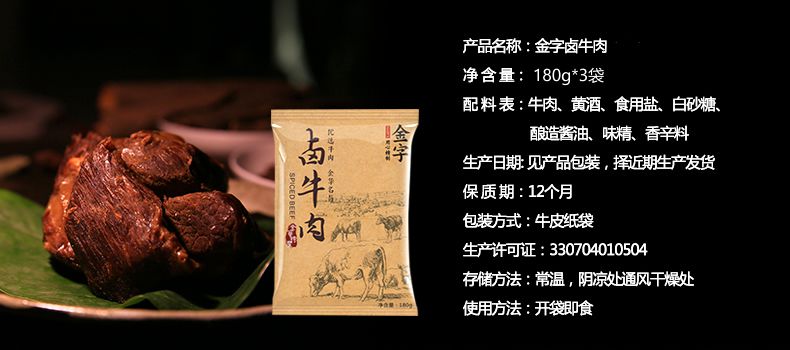 金字
用心特制
优选牛肉
金华名品
卤牛肉
SPICED BEEF
净含量：180g
产品名称：金字卤牛肉
净含量： 180g*3袋
配料表：牛肉、黄酒、食用盐、白砂糖、
酿造酱油、味精、香辛料
生产日期: 见产品包装，择近期生产发货
保质期：12个月
包装方式：牛皮纸袋
生产许可证：330704010504
存储方法：常温，阴凉处通风干燥处
使用方法：开袋即食